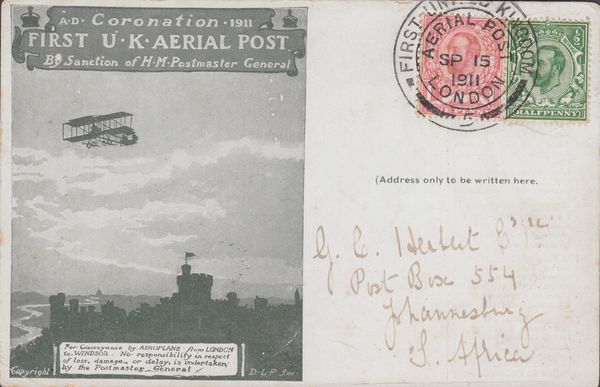 A·D· Coronation ·1911
FIRST U·K·AERIAL POST
By Sanction of H·M·Postmaster General
FIRST·UNITED KINGDOM
AERIAL POST
SP 15
1911
LONDON
HALFPENNY
(Address only to be written here.
G. C. Herbert
Post Box 554
Johannesburg
S. Africa
For Conveyance by AEROPLANE from LONDON
to WINDSOR. No responsibility in respect
of loss, damage, or delay, is undertaken
by the Postmaster General
Copyright